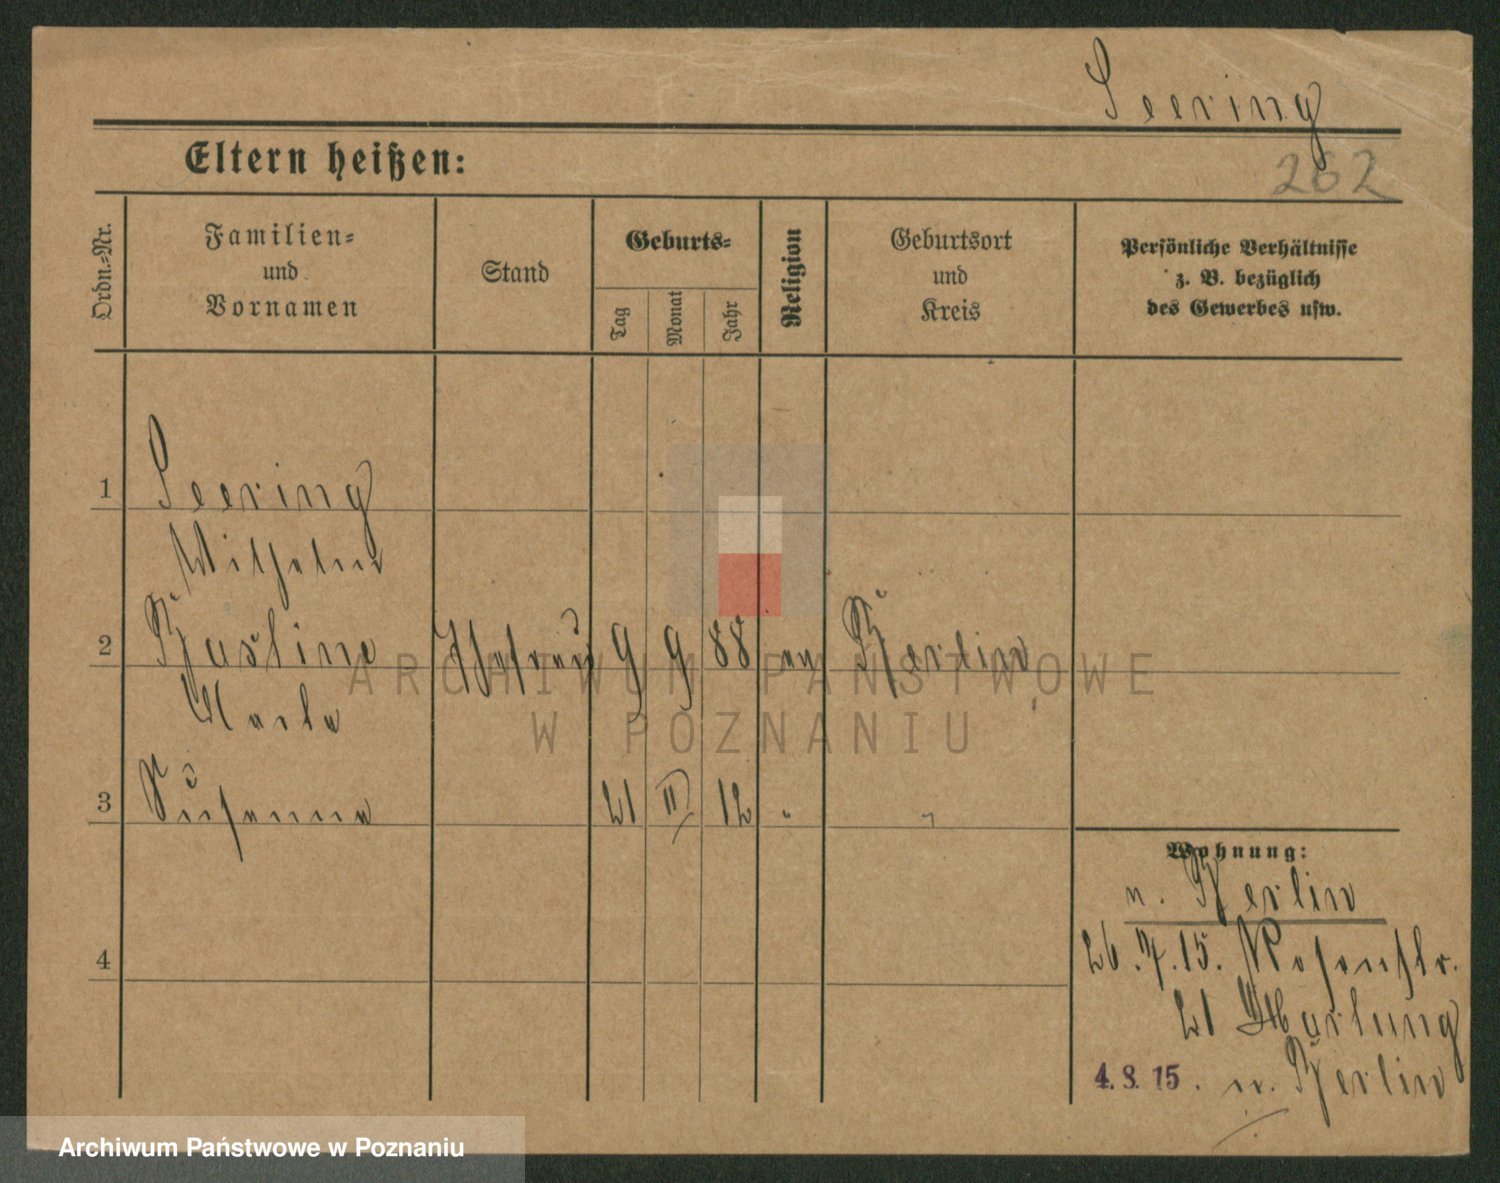 Seering
Eltern heißen:
262
Ordn.-Nr.
Familien-
und
Vornamen
Stand
Geburts-
Tag
Monat
Jahr
Religion
Geburtsort
und
Kreis
Persönliche Verhältnisse
z. B. bezüglich
des Gewerbes usw.
1 Seering
Wilhelm
2 Ehefrau 9 9 88 ev Berlin
3 Susanne 21 II 12 " "
4
Wohnung:
n. Berlin
26.7.15. Rosenstr.
21 Hartung
4.8.15. n. Berlin
ARCHIWUM PAŃSTWOWE
W POZNANIU
Archiwum Państwowe w Poznaniu